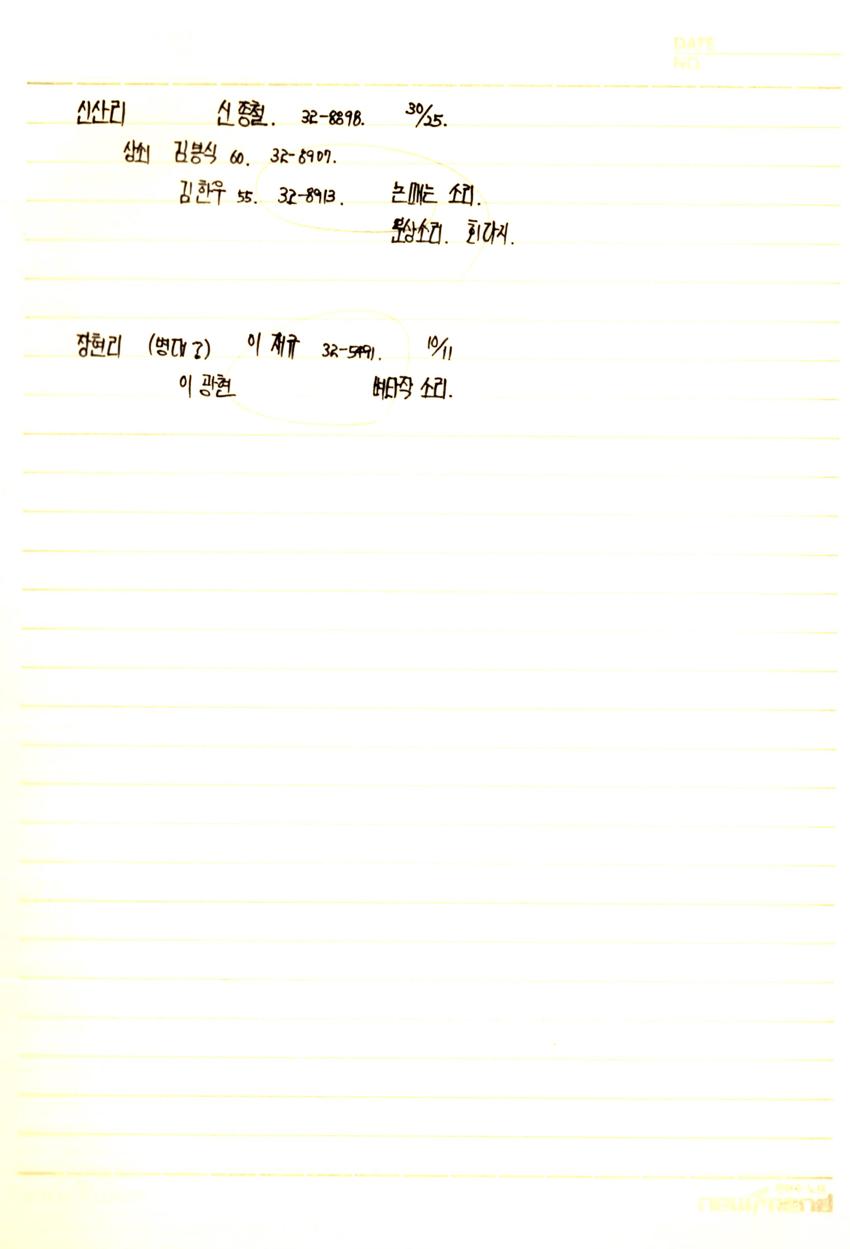 신산리 신종철. 32-8898. 30/25.
상쇠 김봉식 60. 32-8907.
김한우 55. 32-8913. 논매는 소리.
운상소리. 회다지.
장현리 (병대 ?) 이재규 32-5491. 10/11
이광현 벼타작 소리.